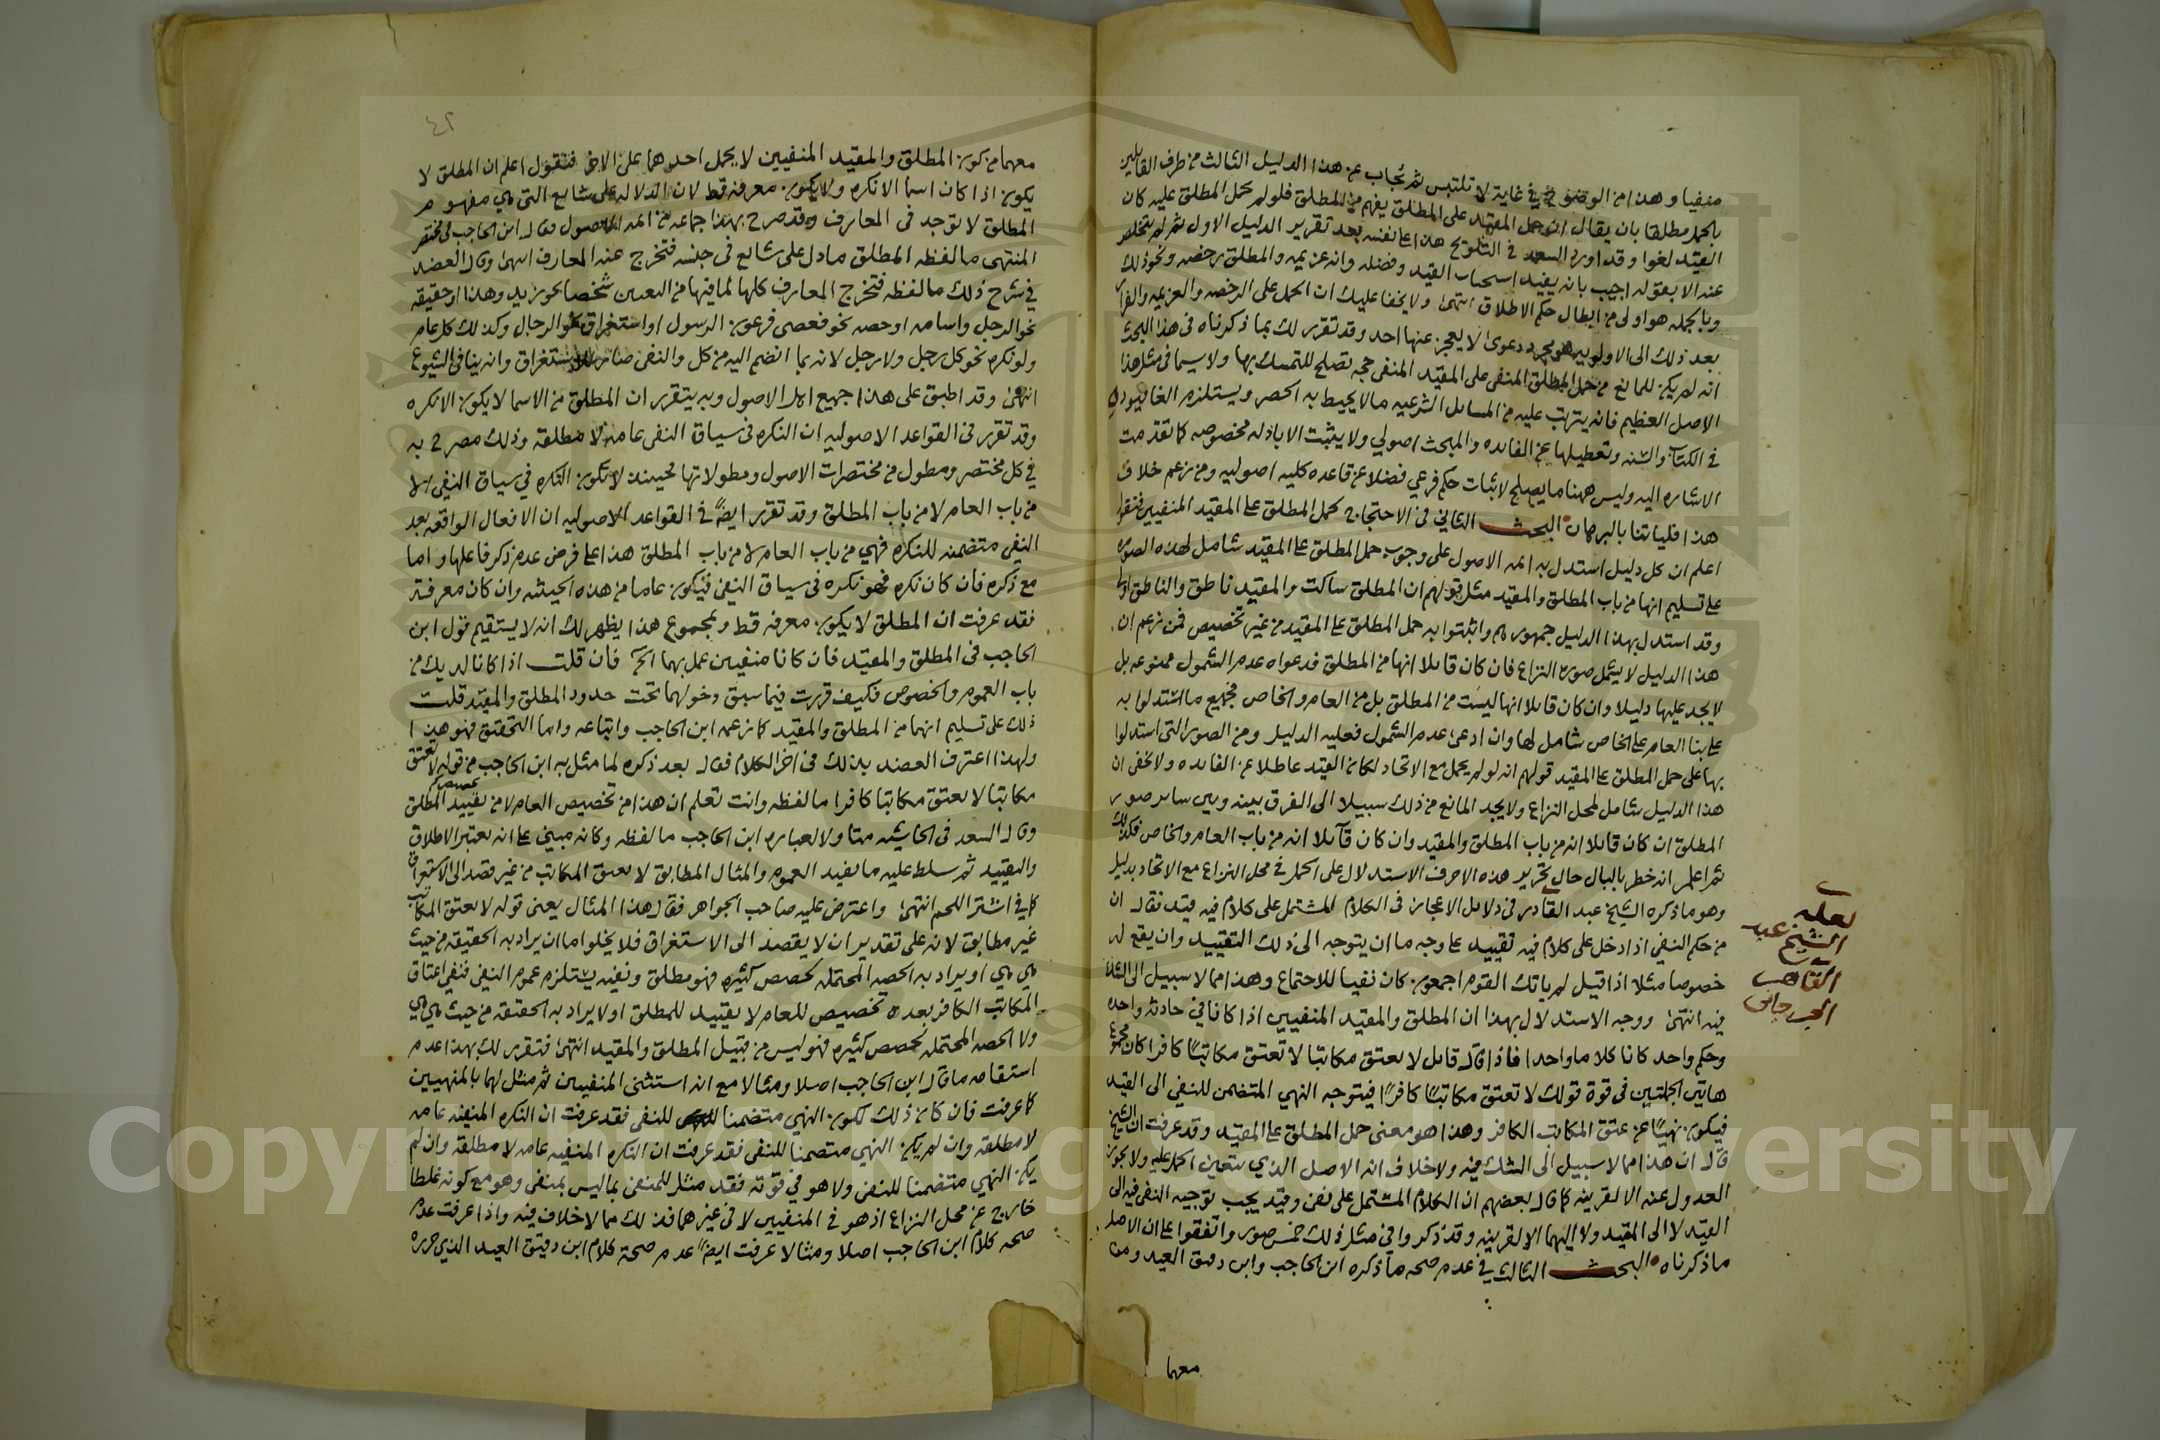 منفيا وهذا من الوضوح في غاية لا تلتبس ثم يجاب عن هذا الدليل الثالث من طرف القايلين
بالحمل مطلقا بان يقال ان حمل المقيد على المطلق يفهم من المطلق فلو لم يحمل المطلق عليه كان
القيد لغوا وقد اورد السعد في التلويح هذا على نفسه بعد تقرير الدليل الاول ثم لم يتخلص
عنه الا بقوله اجيب بانه يفيد استحباب القيد وفضله وانه عزيمه والمطلق رخصه ونحو ذلك
وبالجمله هو اولى من ابطال حكم الاطلاق انتهى ولا يخفا عليك ان الحمل على الرخصه والعزيمه والفرار
بعد ذلك الى الاولويه هو مجرد دعوى لا يعجز عنها احد وقد تقرر لك بما ذكرناه في هذا البحث
انه لم يكن للمانع من حمل المطلق المنفي على المقيد المنفي حجه تصلح للتمسك بها ولا سيما في مثل هذا
الاصل العظيم فانه يترتب عليه من المسائل الشرعيه ما لا يحيط به الحصر ويستلزم الغا قيود
في الكتاب والسنه وتعطيلها عن الفائده والمبحث اصولي ولا يثبت الا بادله مخصوصه كما تقدمت
الاشاره اليه وليس ههنا ما يصلح لاثبات حكم فرعي فضلا عن قاعده كليه اصوليه ومن زعم خلاف
هذا فلياتنا بالبرهان البحث الثاني في الاحتجاج لحمل المطلق على المقيد المنفيين فنقول
اعلم ان كل دليل استدل به ائمه الاصول على وجوب حمل المطلق على المقيد شامل لهذه الصوره
على تسليم انها من باب المطلق والمقيد مثل قولهم ان المطلق ساكت والمقيد ناطق والناطق اولى
وقد استدل بهذا الدليل جمهورهم واثبتوا به حمل المطلق على المقيد من غير تخصيص فمن زعم ان
هذا الدليل لا يشمل صورة النزاع فان كان قايلا انها من المطلق فدعواه عدم الشمول ممنوعه بل
لا يجد عليها دليلا وان كان قايلا انها ليست من المطلق بل من العام والخاص فجميع ما استدلوا به
على بنا العام على الخاص شامل لها وان ادعى عدم الشمول فعليه الدليل ومن الصور التي استدلوا
بها على حمل المطلق على المقيد قولهم انه لو لم يحمل مع الاتحاد لكان القيد عاطلا عن الفايده ولا يخفى ان
هذا الدليل شامل لمحل النزاع ولا يجد المانع من ذلك سبيلا الى الفرق بينه وبين ساير صور
المطلق ان كان قايلا انه من باب المطلق والمقيد وان كان قآيلا انه من باب العام والخاص فكذلك
ثم اعلم انه خطر بالبال حال تحرير هذه الاحرف الاستدلال على الحمل في محل النزاع مع الاتحاد بدليل
وهو ما ذكره الشيخ عبد القادر في دلايل الاعجاز في الكلام المشتمل على كلام فيه قيد فقال ان
من حكم النفي اذا دخل على كلام فيه تقييد على وجه ما ان يتوجه الى ذلك التقييد وان يقع له
خصوصا مثلا اذا قيل لم ياتك القوم اجمعون كان نفيا للاجتماع وهذا مما لا سبيل الى الشك
فيه انتهى ووجه الاستدلال بهذا ان المطلق والمقيد المنفيين اذا كانا في حادثه واحده
وحكم واحد كانا كلاما واحدا فاذا قال قايل لا يعتق مكاتبا لا تعتق مكاتبًا كافرا كان مجموع
هاتين الجملتين في قوة قولك لا تعتق مكاتبًا كافرًا فيتوجه النهي المتضمن للنفي الى القيد
فيكون نهيًا عن عتق المكاتب الكافر وهذا هو معنى حمل المطلق على المقيد وقد عرفت ان الشيخ
قال ان هذا مما لا سبيل الى الشك فيه ولا خلاف انه الاصل الذي يتعين الحمل عليه ولا يجوز
العدول عنه الا لقرينه كما قال بعضهم ان الكلام المشتمل على نفي وقيد يجب توجيه النفي فيه الى
القيد لا الى المقيد ولا اليهما الا لقرينه وقد ذكروا في مثل ذلك خمس صور واتفقوا على ان الاصل
ما ذكرناه البحث الثالث في عدم صحه ما ذكره ابن الحاجب وابن دقيق العيد ومن
معهما
لعله
الشيخ عبد
القاهر
الجرجاني
٤٢
معهما من كون المطلق والمقيد المنفيين لا يحمل احدهما على الاخر فنقول اعلم ان المطلق لا
يكون اذا كان اسما الا نكره ولا يكون معرفه قط لان الدلاله على شايع التي هي مفهوم
المطلق لا توجد في المعارف وقد صرح بهذا جماعه من ائمه الاصول قال ابن الحاجب في مختصر
المنتهى ما لفظه المطلق ما دل على شايع في جنسه فتخرج عنه المعارف انتهى وقال العضد
في شرح ذلك ما لفظه فتخرج المعارف كلها لما فيها من التعيين شخصا نحو زيد وهذا او حقيقه
نحو الرجل واسامه او حصه نحو فعصى فرعون الرسول او استغراقا نحو الرجال وكذلك كل عام
ولو نكره نحو كل رجل ولا رجل لانه بما انضم اليه من كل والنفي صار للاستغراق وانه ينافي الشيوع
انتهى وقد اطبق على هذا جميع اهل الاصول وبه يتقرر ان المطلق من الاسما لا يكون الا نكره
وقد تقرر في القواعد الاصوليه ان النكره في سياق النفي عامه لا مطلقه وذلك مصرح به
في كل مختصر ومطول من مختصرات الاصول ومطولاتها فحينئذ لا تكون النكره في سياق النفي الا
من باب العام لا من باب المطلق وقد تقرر ايضًا في القواعد الاصوليه ان الافعال الواقعه بعد
النفي متضمنه للنكره فهي من باب العام لا من باب المطلق هذا على فرض عدم ذكر فاعلها واما
مع ذكره فان كان نكره فهو نكره في سياق النفي فيكون عاما من هذه الحيثيه وان كان معرفة
فقد عرفت ان المطلق لا يكون معرفه قط وبمجموع هذا يظهر لك انه لا يستقيم قول ابن
الحاجب في المطلق والمقيد فان كانا منفيين عمل بهما الخ فان قلت اذا كانا لديك من
باب العموم والخصوص فكيف قررت فيما سبق دخولهما تحت حدود المطلق والمقيد قلت
ذلك على تسليم انهما من المطلق والمقيد كما زعمه ابن الحاجب واتباعه واما التحقيق فهو هذا
ولهذا اعترف العضد بذلك في اخر الكلام فقال بعد ذكره لما مثل به ابن الحاجب من قوله لا تعتق
مكاتبا لا يعتق مكاتبا كافرا ما لفظه وانت تعلم ان هذا من تخصيص العام لا من تقييد المطلق
وقال السعد في الحاشيه متاولا لعباره ابن الحاجب ما لفظه وكانه مبني على انه يعتبر الاطلاق
والتقييد ثم سلط عليه ما يفيد العموم والمثال المطابق لا يعتق المكاتب من غير قصد الى الاستغراق
كما في اشتر اللحم انتهى واعترض عليه صاحب الجواهر فقال هذا المثال يعني قوله لا يعتق المكاتب
غير مطابق لانه على تقدير ان لا يقصد الى الاستغراق فلا يخلوا اما ان يراد به الحقيقه من حيث
هي هي او يراد به الحصه المحتمله لحصص كثيره فهو مطلق ونفيه يستلزم عموم النفي فنفي اعتاق
المكاتب الكافر بعده تخصيص للعام لا تقييد للمطلق او لا يراد به الحقيقه من حيث هي هي
ولا الحصه المحتمله لحصص كثيره فهو ليس من قبيل المطلق والمقيد انتهى فتقرر لك بهذا عدم
استقامه ما قال ابن الحاجب اصلا ومثالا مع انه استثنى المنفيين ثم مثل لهما بالمنهيين
كما عرفت فان كان ذلك لكون النهي متضمنا للنفي فقد عرفت ان النكره المنفيه عامه
لا مطلقه وان لم يكن النهي متضمنا للنفي فقد عرفت ان النكره المنفيه عامه لا مطلقه وان لم
يكن النهي متضمنا للنفي ولا هو في قوته فقد مثل للمنفي بما ليس بمنفي وهو مع كونه غلطا
خارج عن محل النزاع اذ هو في المنفيين لا في غيرهما فذلك مما لا خلاف فيه واذا عرفت عدم
صحه كلام ابن الحاجب اصلا ومثالا عرفت ايضًا عدم صحة كلام ابن دقيق العيد الذي حرره
Copyright © King Saud University